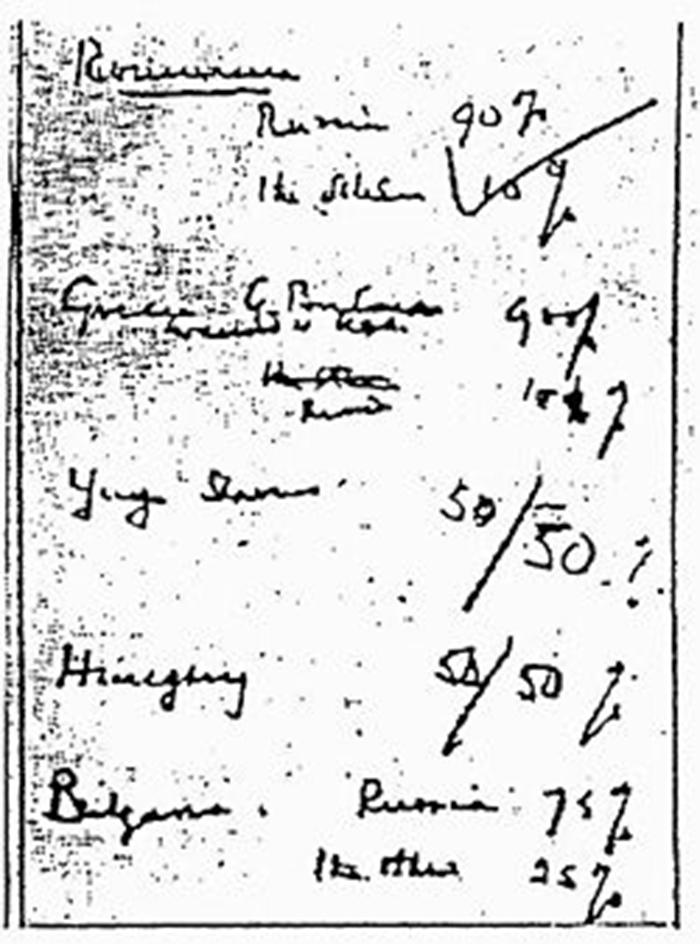 Roumania
Russia 90%
The others 10%
Greece G. Britain 90%
in accord with USA
Russia 10%
Yugoslavia 50/50%
Hungary 50/50%
Bulgaria. Russia 75%
The others 25%